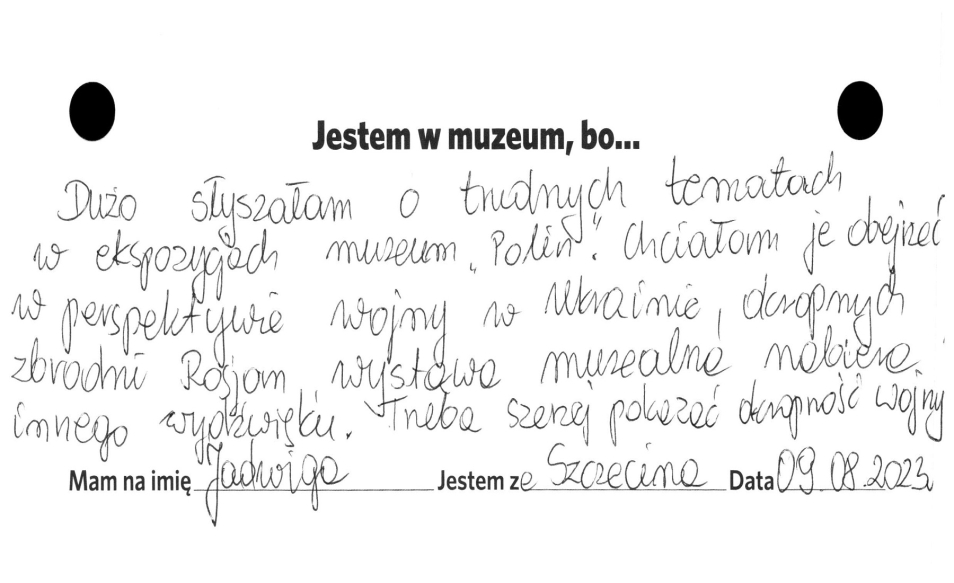 Jestem w muzeum, bo...
Dużo słyszałam o trudnych tematach
w ekspozycjach muzeum „Polin”. Chciałam je obejrzeć
w perspektywie wojny w Ukrainie, okropnych
zbrodni Rosjan wystawa muzealna nabiera
innego wydźwięku. Trzeba szerzej pokazać okropność wojny
Mam na imię Jadwiga Jestem ze Szczecina Data 09.08.2023